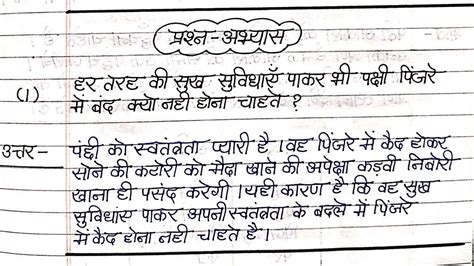 प्रश्न-अभ्यास
(1) हर तरह की सुख सुविधाएँ पाकर भी पक्षी पिंजरे
में बंद क्यों नही होना चाहते ?
उत्तर- पंछी को स्वतंत्रता प्यारी है । वह पिंजरे में कैद होकर
सोने की कटोरी को मैदा खाने की अपेक्षा कड़वी निबोरी
खाना ही पसंद करेगी । यही कारण है कि वह सुख
सुविधांए पाकर अपनी स्वतंत्रता के बदले में पिंजरे
में कैद होना नही चाहते है ।